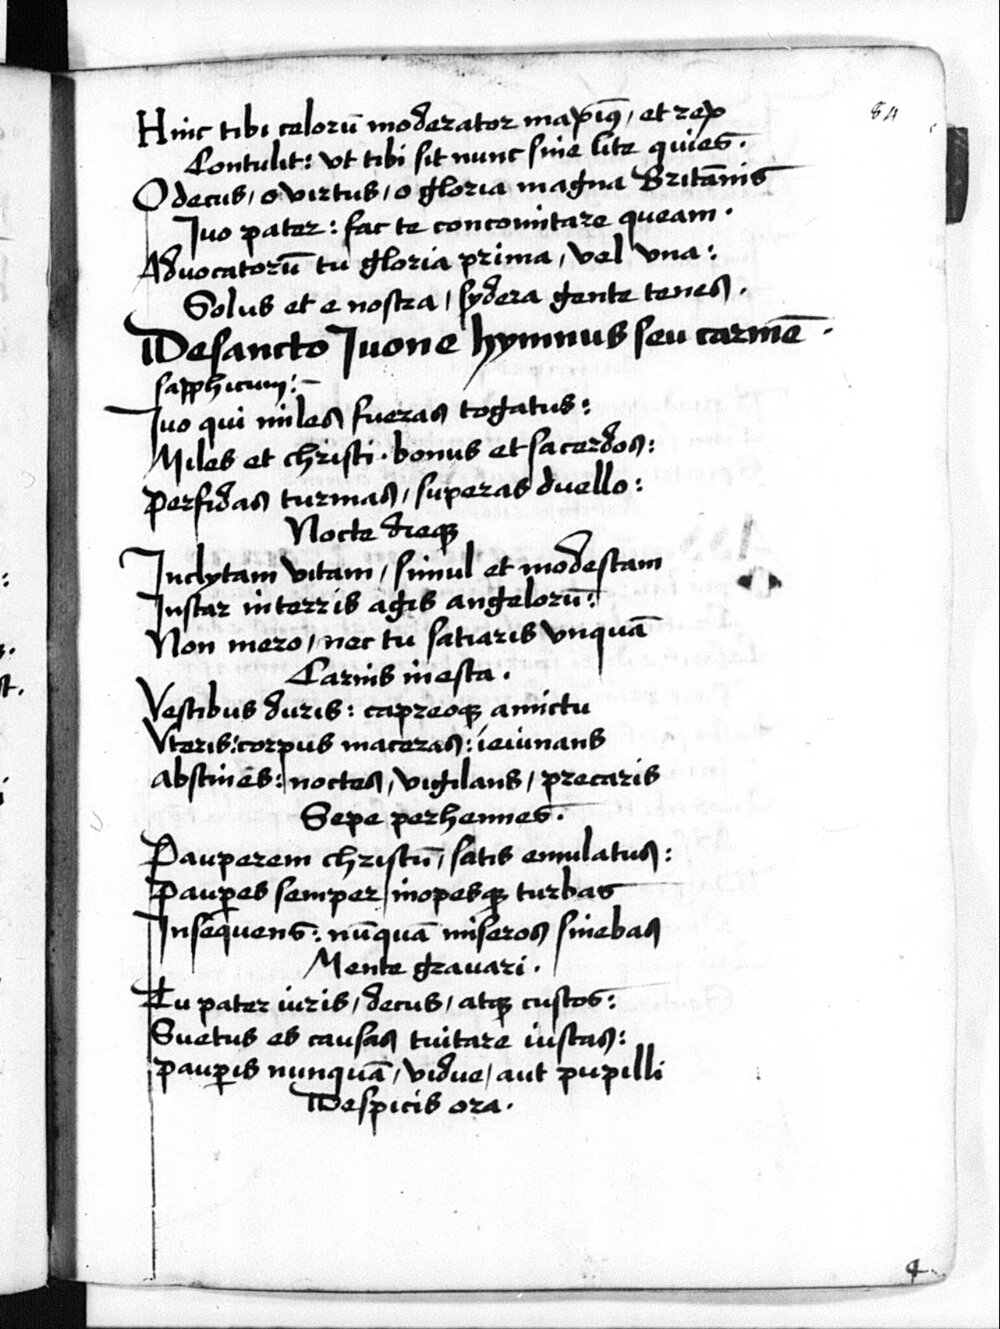 84
Hinc tibi celorū moderator mariq̄ʒ, et reꝝ
Contulit: vt tibi sit nunc sine lite quies.
O decus, o virtus, o gloria magna Britānis
Iuo pater: fac te concomitare queam.
Aduocatorū tu gloria prima, vel vna:
Solus et e nostra, sydera gente tenes.
De sancto Iuone hymnus seu carmē.
sapphicum:-
Iuo qui miles fueras togatus:
Miles et christi. bonus et sacerdos:
Perfidas turmas, superas duello:
Nocte dieqꝫ
Inclytam vitam, simul et modestam
Instar in terris agis angelorū:
Non mero, nec tu satiaris vnquā
Carnis in esta.
Vestibus duris: capreoqꝫ amictu
Vteris: corpus maceras: ieiunans
abstines: noctes, vigilans, precaris
Sepe perhennes.
Pauperem christū, satis emulatus:
Pauꝑes semper, inopesqꝫ turbas
Insequens: nūquā miseros sinebas
Mente grauari.
Tu pater iuris, decus, atqꝫ custos:
Suetus es causas tuitare iustas:
pauꝑis nunquā, vidue, aut pupilli
Despicis ora.